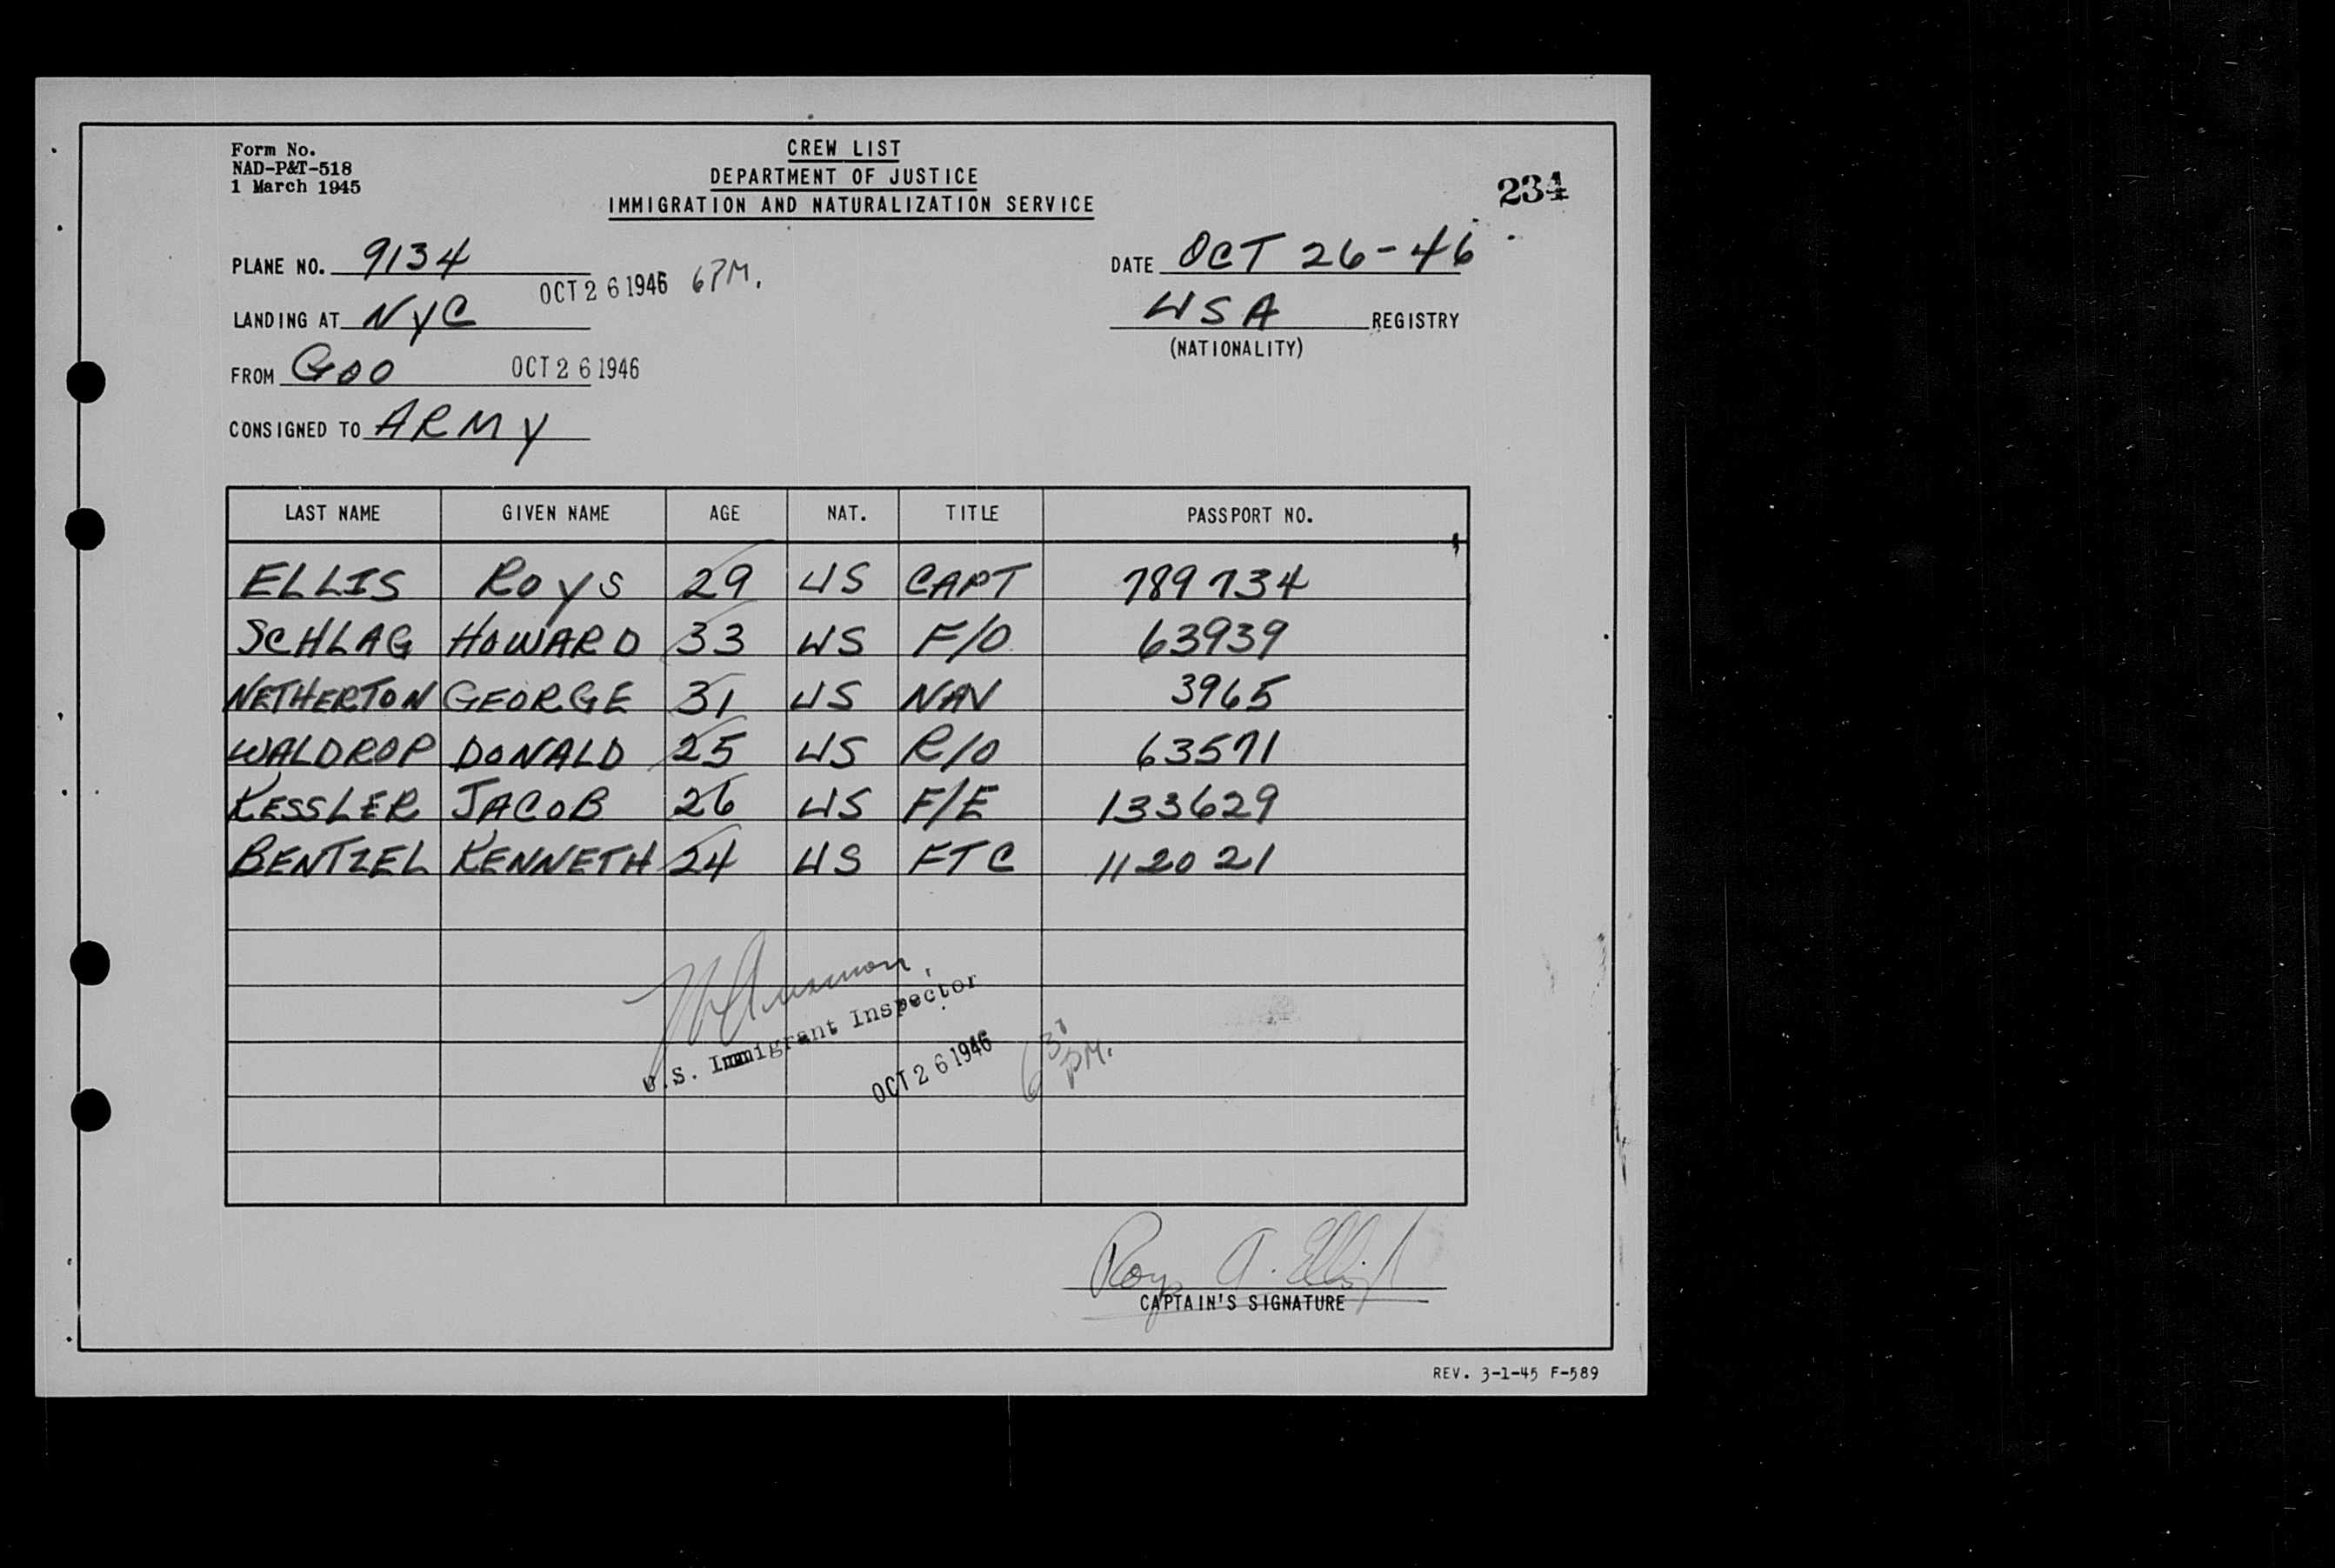 Form No.
NAD-P&T-518
1 March 1945
CREW LIST
DEPARTMENT OF JUSTICE
IMMIGRATION AND NATURALIZATION SERVICE
234
PLANE NO. 9134
DATE OCT 26-46
OCT 26 1946 6 PM.
LANDING AT NYC
USA REGISTRY
(NATIONALITY)
FROM GOO OCT 26 1946
CONSIGNED TO ARMY
LAST NAME GIVEN NAME AGE NAT. TITLE PASSPORT NO.
ELLIS ROYS 29 US CAPT 789734
SCHLAG HOWARD 33 US F/O 63939
NETHERTON GEORGE 31 US NAV 3965
WALDROP DONALD 25 US R/O 63571
KESSLER JACOB 26 US F/E 133629
BENTZEL KENNETH 24 US FTC 112021
U.S. Immigrant Inspector
OCT 26 1946 PM.
CAPTAIN'S SIGNATURE
REV. 3-1-45 F-589